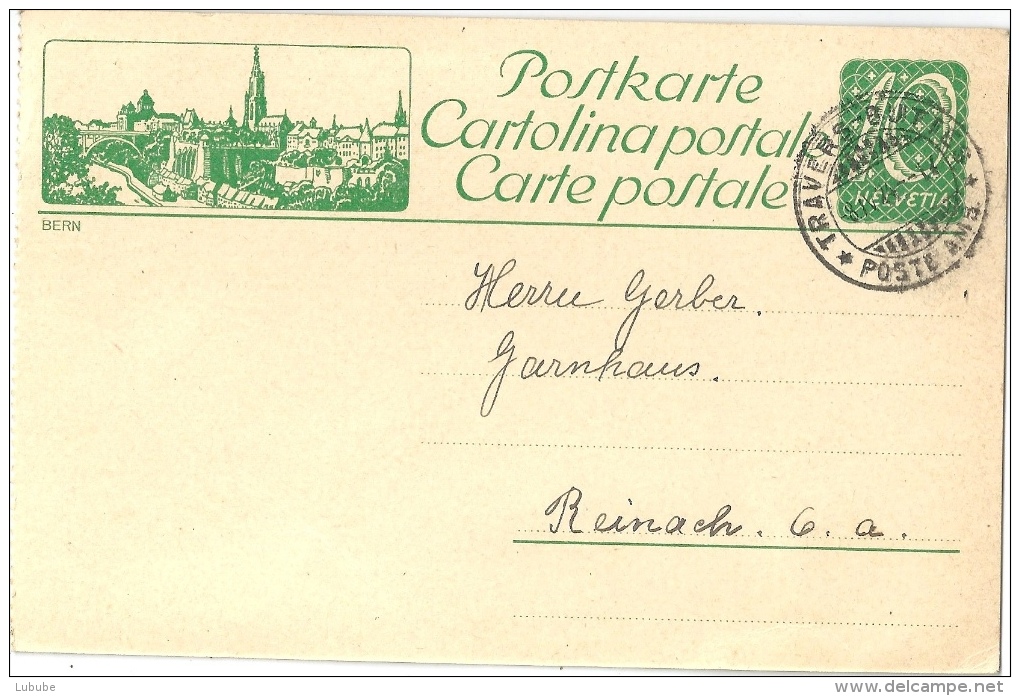 Postkarte
Cartolina postale
Carte postale
HELVETIA
BERN
POSTE AMB.
Herrn Gerber.
Garnhaus.
Reinach. C. a.
Lubube
delcampe.net